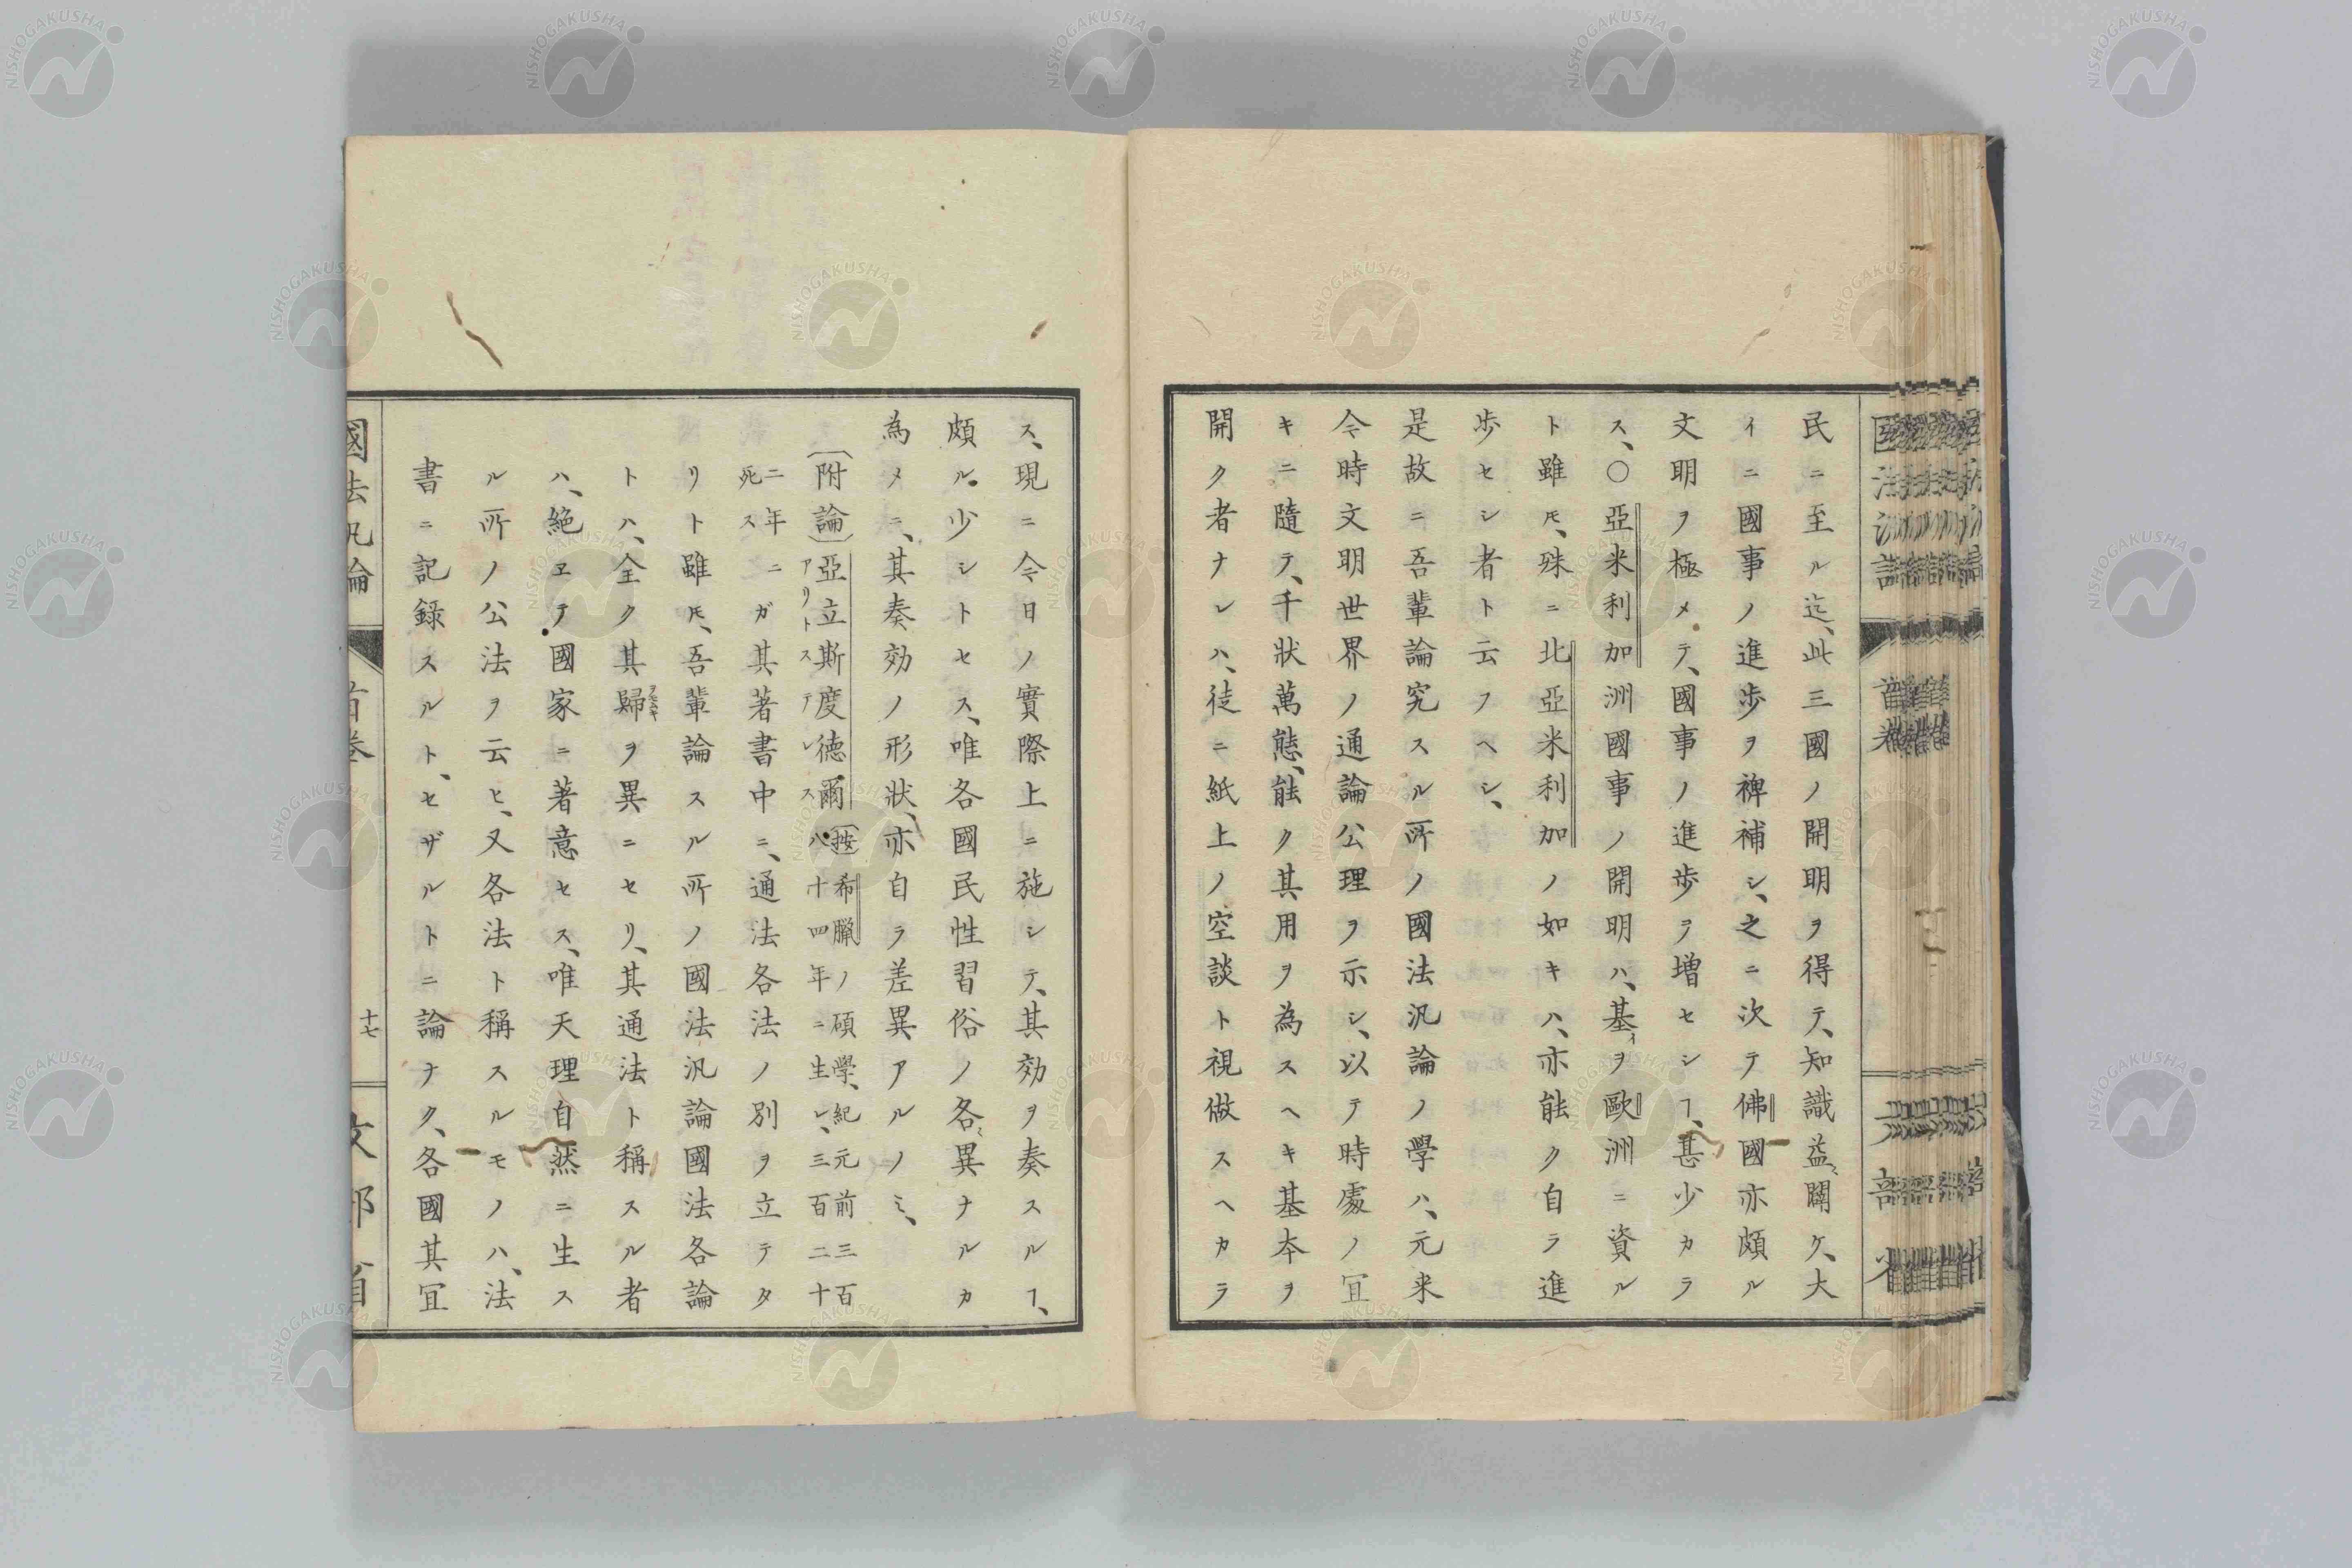 民ニ至ル迄、此三國ノ開明ヲ得テ、知識益〻闢ケ、大
イニ國事ノ進歩ヲ裨補シ、之ニ次テ佛國亦頗ル
文明ヲ極メテ、國事ノ進歩ヲ増セシヿ、甚少カラ
ス、○亞米利加洲國事ノ開明ハ、基イヲ歐洲ニ資ル
ト雖𪜈、殊ニ北亞米利加ノ如キハ、亦能ク自ラ進
歩セシ者ト云フヘシ、
是故ニ吾輩論究スル所ノ國法汎論ノ學ハ、元来
今時文明世界ノ通論公理ヲ示シ、以テ時處ノ冝
キニ隨テ、千狀萬態、能ク其用ヲ為スヘキ基本ヲ
開ク者ナレハ、徒ニ紙上ノ空談ト視做スヘカラ
ス、現ニ今日ノ實際上ニ施シテ、其効ヲ奏スルヿ、
頗ル少シトセス、唯各國民性習俗ノ各〻異ナルカ
為メニ、其奏効ノ形狀、亦自ラ差異アルノミ、
(附論)亞立斯度德爾アリストステレス(按希臘ノ碩學、紀元前三百
八十四年ニ生レ、三百二十
二年ニ
死ス
ガ其著書中ニ、通法各法ノ別ヲ立テタ
リト雖𪜈、吾輩論スル所ノ國法汎論國法各論
トハ、全ク其歸ヲモムキヲ異ニセリ、其通法ト稱スル者
ハ、絶ヱテ國家ニ著意セス、唯天理自然ニ生ス
ル所ノ公法ヲ云ヒ、又各法ト稱スルモノハ、法
書ニ記録スルト、セザルトニ論ナク、各國其冝
國法汎論 首巻 十七 文部省